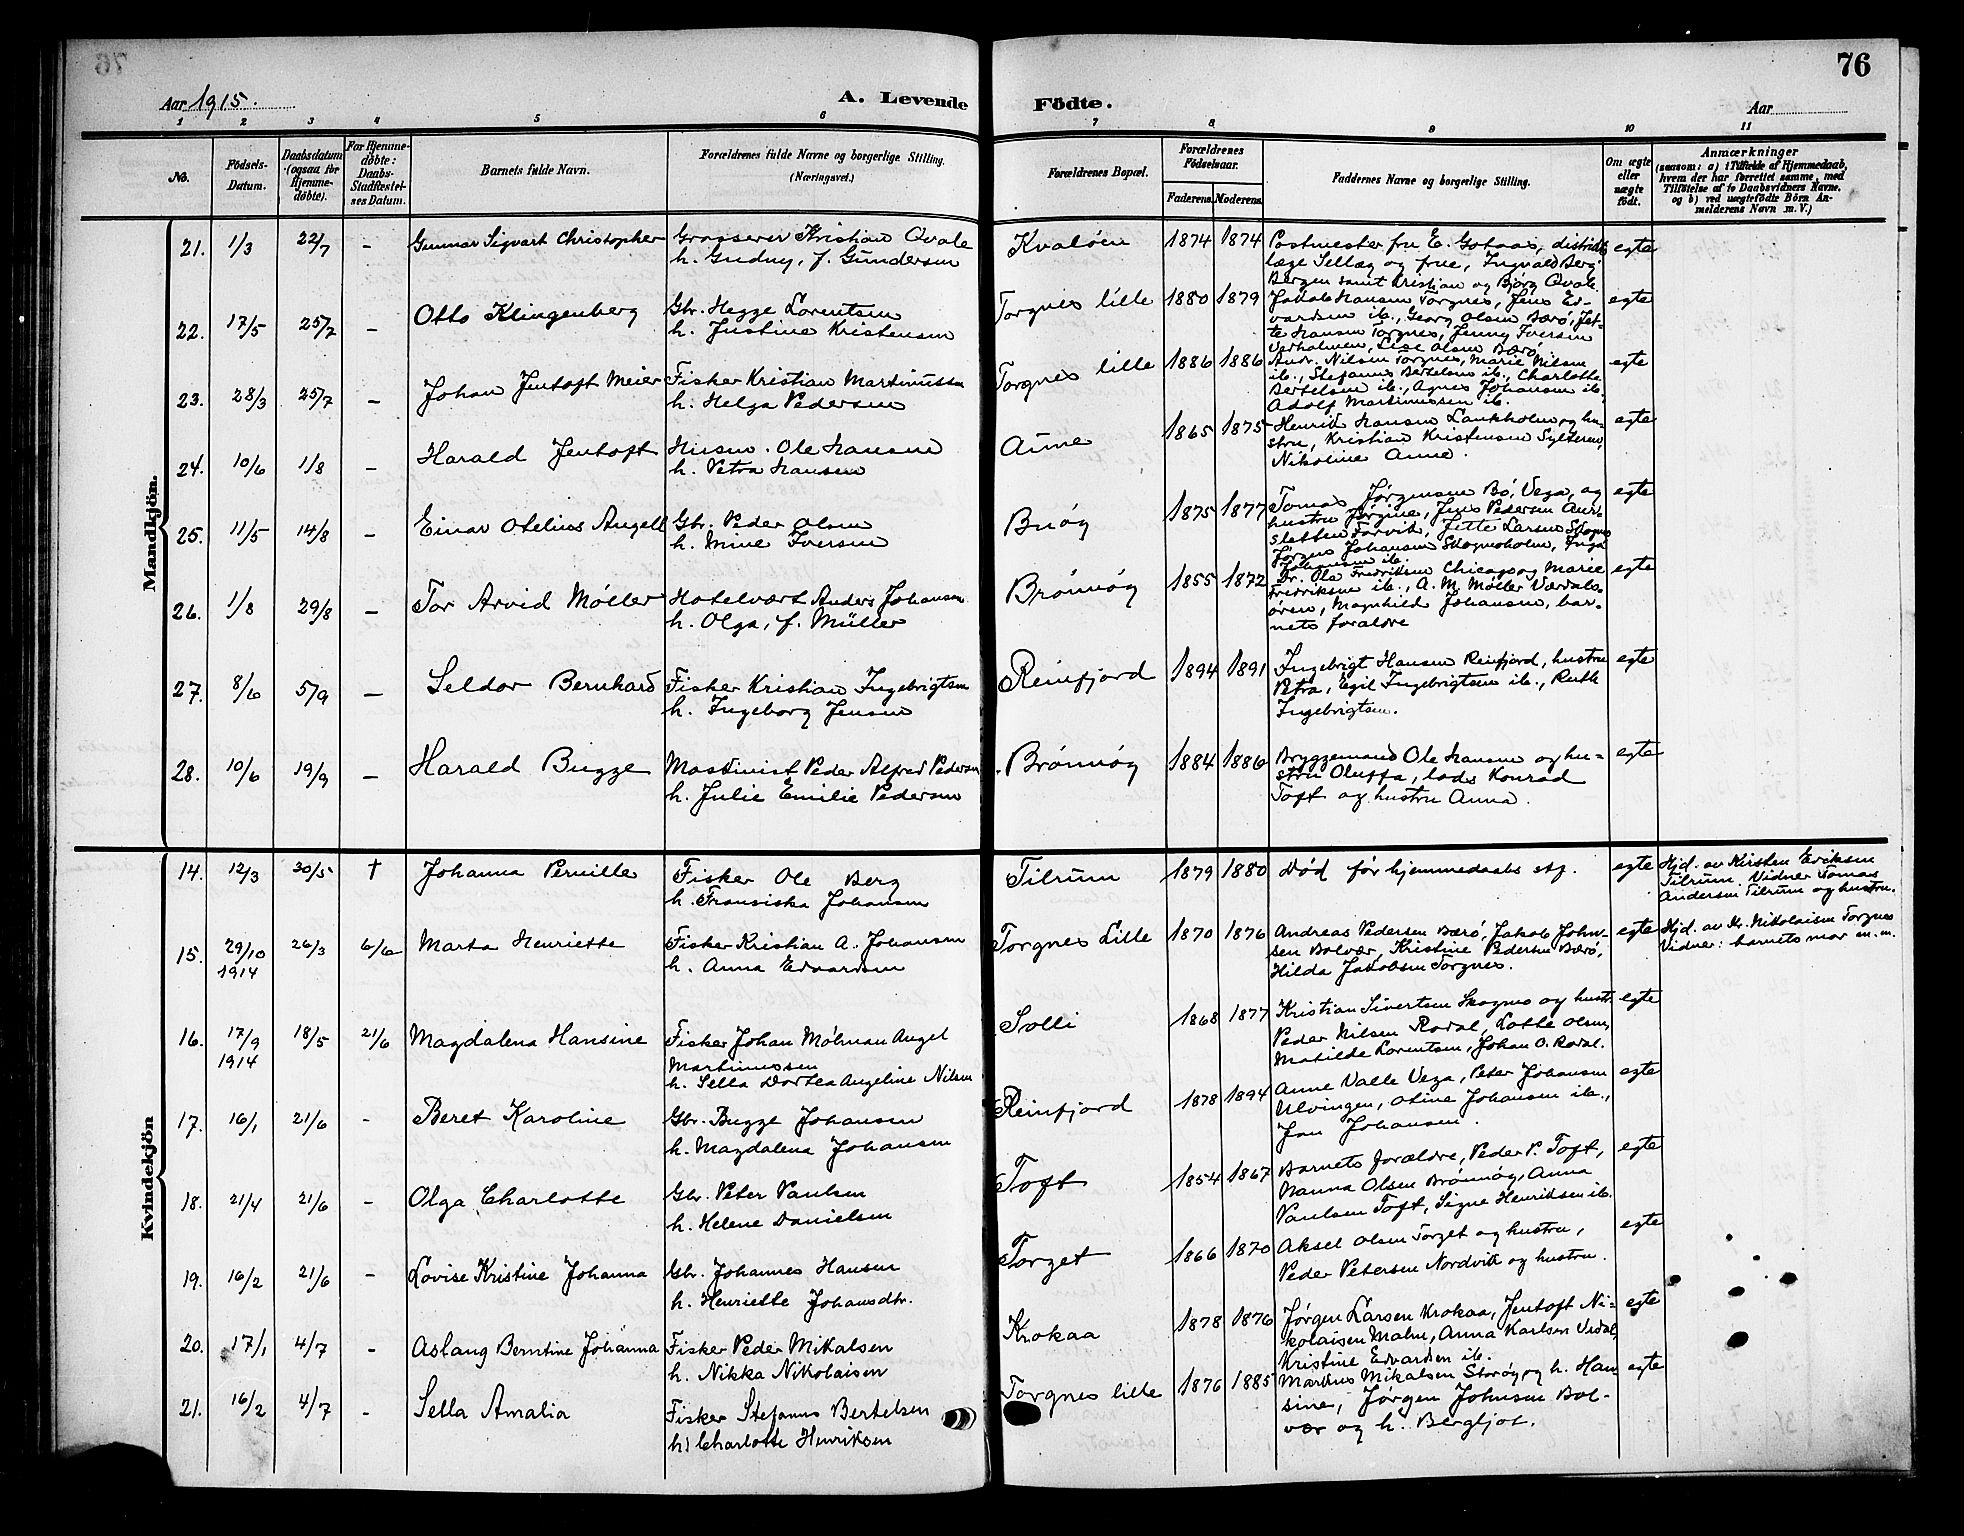 76
Aar 1915.
A. Levende Födte.
Aar
1 2 3 4 5 6 7 8 9 10 11
No.
Födsels-Datum.
Daabsdatum (ogsaa för Hjemme-döbte).
For Hjemme-döbte: Daabs-Stadfæstel-ses Datum.
Barnets fulde Navn.
Forældrenes fulde Navne og borgerlige Stilling. (Næringsvei.)
Forældrenes Bopæl.
Forældrenes Födselsaar.
Faderens. Moderens.
Faddernes Navne og borgerlige Stilling.
Om ægte eller uægte födt.
Anmærkninger
(saasom: a) i Tilfælde af Hjemmedaab,
hvem der har forrettet samme, med
Tilföielse af to Daabsvidners Navne,
og b) ved uægtefödte Börn An-
melderens Navn m. V.)
Mandkjön.
21. 1/3 22/7 - Gunnar Sigvart Christopher
Grosserer Kristian Qvale
h. Gudny, f. Gundersen
Kvaløen 1874 1874
Postmester fru E. Gotaas, distrikts
læge Sellæg og frue, Ingvald Berg
Bergen samt Kristian og Bjørg Qvale
egte
22. 17/5 25/7 - Otto Klingenberg
Gbr. Hegge Lorentsen
h. Justine Kristensen
Torgnes lille 1880 1879
Jakob Hansen Torgnes, Jens Ed-
vardsen ib., Georg Olsen Bærø, Jet-
te Hansen Torgnes, Jenny Iversen
Værholmen, Lise Olsen Bærø
egte
23. 28/3 25/7 - Johan Jentoft Meier
Fisker Kristian Martinussen
h. Helga Pedersen
Torgnes lille 1886 1886
Andr. Nilsen Torgnes, Marie Nilsen
ib., Stefanus Bertelsen ib., Charlotte
Bertelsen ib., Agnes Johansen ib.
Adolf Martinussen ib.
egte
24. 10/6 1/8 - Harald Jentoft
Husm. Ole Hansen
h. Petra Hansen
Aune 1865 1875
Henrik Hansen Lankholm og hu-
stru, Kristian Kristensen Sylteren,
Nikoline Aune.
egte
25. 11/5 14/8 - Einar Otelius Angell
Gbr. Peder Olsen
h. Mine Iversen
Buøy 1875 1877
Tomas Jørgensen Bø, Vega, og
hustru Jørgine, Jens Pedersen Aur-
sletten Forvik, Jette Larsen Skogns
Jørgen Johansen Skognsholm, Inga
Johansen ib.
egte
26. 1/8 29/8 - Tor Arvid Møller
Hotelvært Anders Johansen
h. Olga, f. Müller
Brønnøy 1855 1872
Dr. Ole Fredriksen Chicago og Marie
Fredriksen ib., A. M. Møller Værdals-
øren, Magnhild Johansen, bar-
nets forældre
egte
27. 8/6 5/9 - Seldor Bernhard
Fisker Kristian Ingebrigtsen
h. Ingeborg Jensen
Reinfjord 1894 1891
Ingebrigt Hansen Reinfjord, hustru
Petra, Egil Ingebrigtsen ib., Ruth
Ingebrigtsen.
egte
28. 10/6 19/9 - Harald Bugge
Maskinist Peder Alfred Pedersen
h. Julie Emilie Pedersen
Brønnøy 1884 1886
Bryggemand Ole Hansen og hu-
stru Oluffa, lods Konrad
Toft og hustru Anna.
egte
Kvindekjön
14. 12/3 30/5 † Johanna Pernille
Fisker Ole Berg
h. Fransiska Johansen
Tilrum 1879 1880
Død før hjemmedaabs stf.
egte
Hjd. av Kirsten Eriksen
Tilrum. Vidner Tomas
Andersen Tilrum og hustru.
15. 29/10 1914 26/3 6/6 Marta Henriette
Fisker Kristian A. Johansen
h. Anna Edvardsen
Torgnes Lille 1870 1876
Andreas Pedersen Bærø, Jakob John-
sen Bolvær, Kristine Pedersen Bærø,
Hilda Jakobsen Torgnes.
egte
Hjd. av Kr. Nikolaisen Torgnes
Vidner: barnets mor m. m.
16. 17/9 1914 18/5 21/6 Magdalena Hansine
Fisker Johan Mølman Angel
Martinussen
h. Sella Dortea Angeline Nilsen
Solli 1868 1877
Kristian Sivertsen Skognes og hustr.
Peder Nilsen Rodal, Lotte Olsen,
Matilde Lorentsen, Johan O. Rodal.
egte
17. 16/1 21/6 - Beret Karoline
Gbr. Bugge Johansen
h. Magdalena Johansen
Reinfjord 1878 1894
Anne Valle Vega, Peter Johansen
Ulvingen, Otine Johansen ib.,
Jan Johansen.
egte
18. 21/4 21/6 - Olga Charlotte
Gbr. Peter Paulsen
h. Helene Danielsen
Toft 1854 1867
Barnets forældre, Peder P. Toft,
Nanna Olsen Brønnøy, Anna
Paulsen Toft, Signe Henriksen ib.
egte
19. 16/2 21/6 - Lovise Kristine Johanna
Gbr. Johannes Hansen
h. Henriette Johansdtr.
Torget 1866 1870
Aksel Olsen Torget og hustru,
Peder Petersen Nordvik og hustru.
egte
20. 17/1 4/7 - Aslaug Berntine Johanna
Fisker Peder Mikalsen
h. Nikka Nikolaisen
Krokaa 1878 1876
Jørgen Larsen Krokaa, Jentoft Ni-
kolaisen Malm, Anna Karlsen Vedal,
Kristine Edvardsen ib.
egte
21. 16/2 4/7 - Sella Amalia
Fisker Stefanus Bertelsen
h. Charlotte Henriksen
Torgnes lille 1876 1885
Martinus Mikalsen Storøy og h. Han-
sine, Jørgen Johnsen Bol-
vær og h. Bergljot.
egte